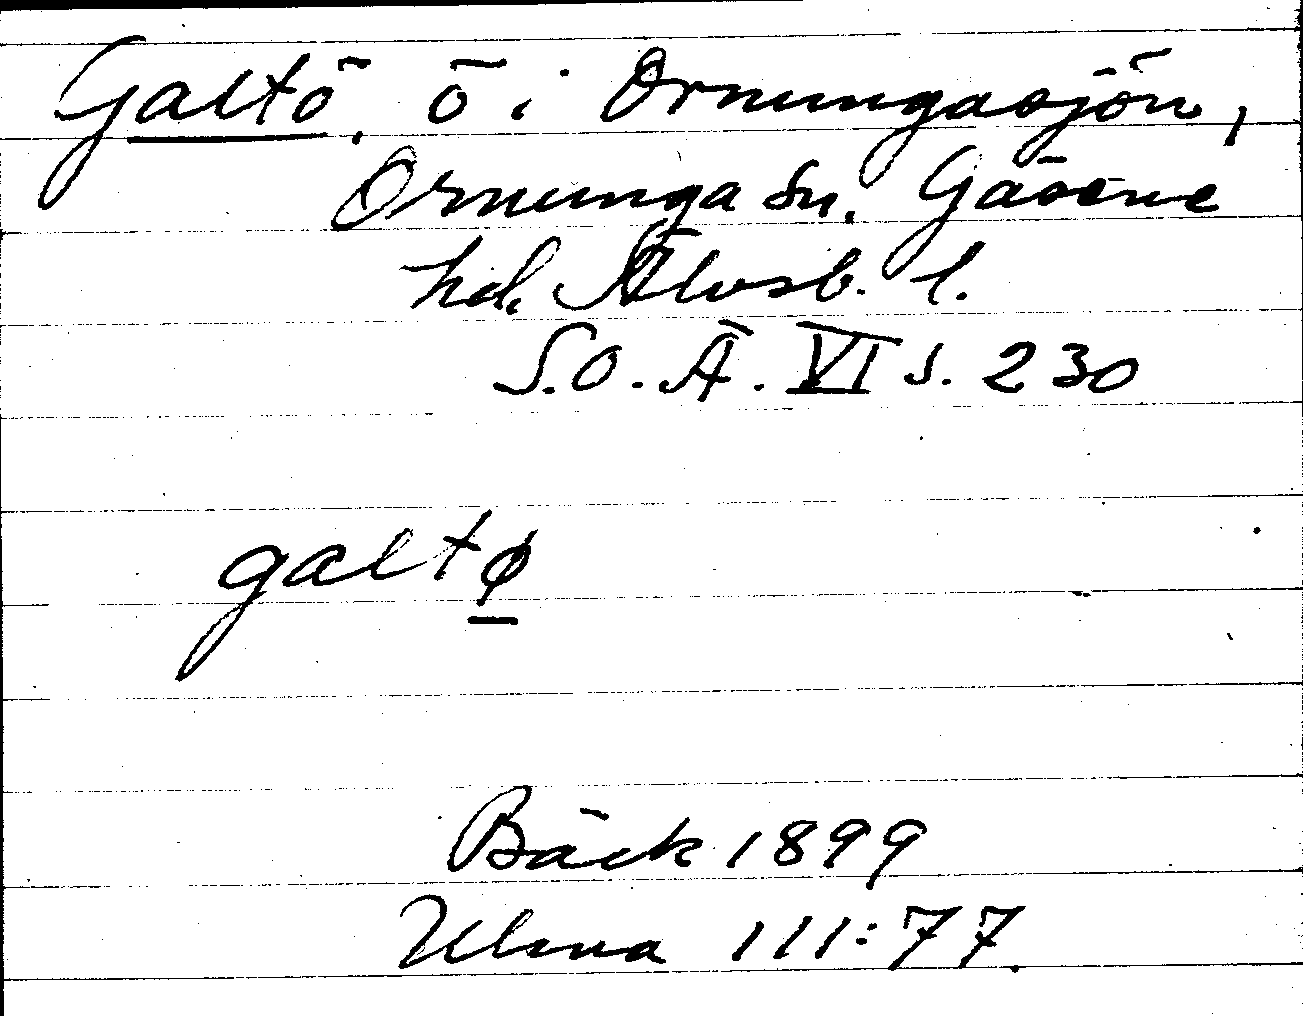 Galtö, ö i Ornungasjön,
Ornunga sn. Gäsene
hd, Älvsb. l.
S.O.Ä. VI s. 230
galtø
Bäck 1899
Ulma 111:77.